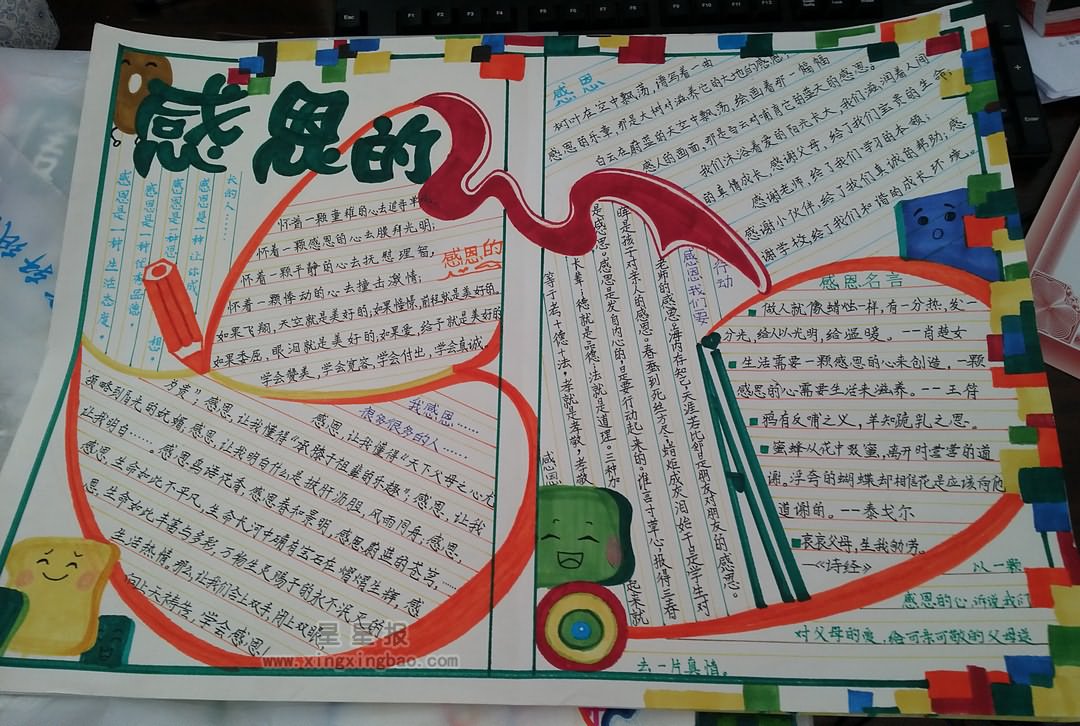 感恩的
怀着一颗感恩的心去膜拜光明;
怀着一颗平静的心去抚慰理智,
怀着一颗悸动的心去撞击激情,
如果飞翔,天空就是美好的,如果憧憬,前程就是美好的
如果委屈,眼泪就是美好的,如果爱,给予就是美好的
学会赞美,学会宽容,学会付出,学会真诚
感恩的
我感恩……
很多很多的人……
感恩,让我懂得"天下父母之心尤
为贵";感恩,让我懂得"承膝于祖辈的乐趣";感恩,让我
领略到育儿的妖媚,感恩,让我明白什么是披肝沥胆,风雨同舟,感恩,
让我明白……。感恩鸟语花香,感恩春和景明,感恩蔚蓝的苍穹,……
感恩,生命如此不平凡,生命长河中确有宝石在熠熠生辉,感
恩,生命如此丰富与多彩,万物生灵赐予的永不泯灭的
生活热情,那么,让我们合上双手,闭上双眼,
向上天祷告,学会感恩!
感恩
树叶在空中飘荡,清写着一曲
感恩的乐章,那是大树对滋养它的大地的感恩
白云在蔚蓝的天空中飘荡,绘画着那一幅幅
感人的画面,那是白云对哺育它的蓝天的感恩。
我们沐浴着爱的阳光长大,我们滋润着人间
的真情成长,感谢父母,给了我们宝贵的生命,
感谢老师,给了我们学习的本领;
感谢小伙伴,给了我们真诚的帮助;感
谢学校,给了我们和谐的成长环境。
感恩我们要
行动
老师的感恩。海内存知己,天涯若比邻是朋友对朋友的感恩。
晖是孩子对亲人的感恩。春蚕到死丝方尽,蜡炬成灰泪始干是学生对
是感恩。感恩是发自内心的,是要行动起来的。谁言寸草心,报得三春
等于孝+德+法,孝就是孝敬,孝敬
感恩名言
做人就像蜡烛一样,有一分热,发一
分光,给人以光明,给温暖。 --肖楚女
生活需要一颗感恩的心来创造,一颗
感恩的心需要生活来滋养。 --王符
鸦有反哺之义,羊知跪乳之恩。
蜜蜂从花中啜蜜,离开时营营的道
谢,浮夸的蝴蝶却相信花是应该向他
道谢的。--泰戈尔
哀哀父母,生我劬劳。
—《诗经》
以一颗
感恩的心诉说我们
对父母的爱,给可亲可敬的父母送
去一片真情。
星星报
www.xingxingbao.com